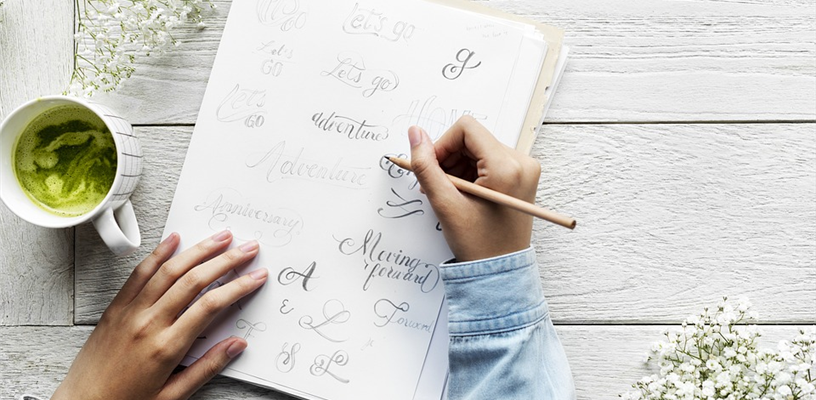 Let's go
Let's
GO
g
Let's go
Let's
GO
adventure
HOME
Adventure
Anniversary
Moving
forward
A
Forward
E
L
S
L